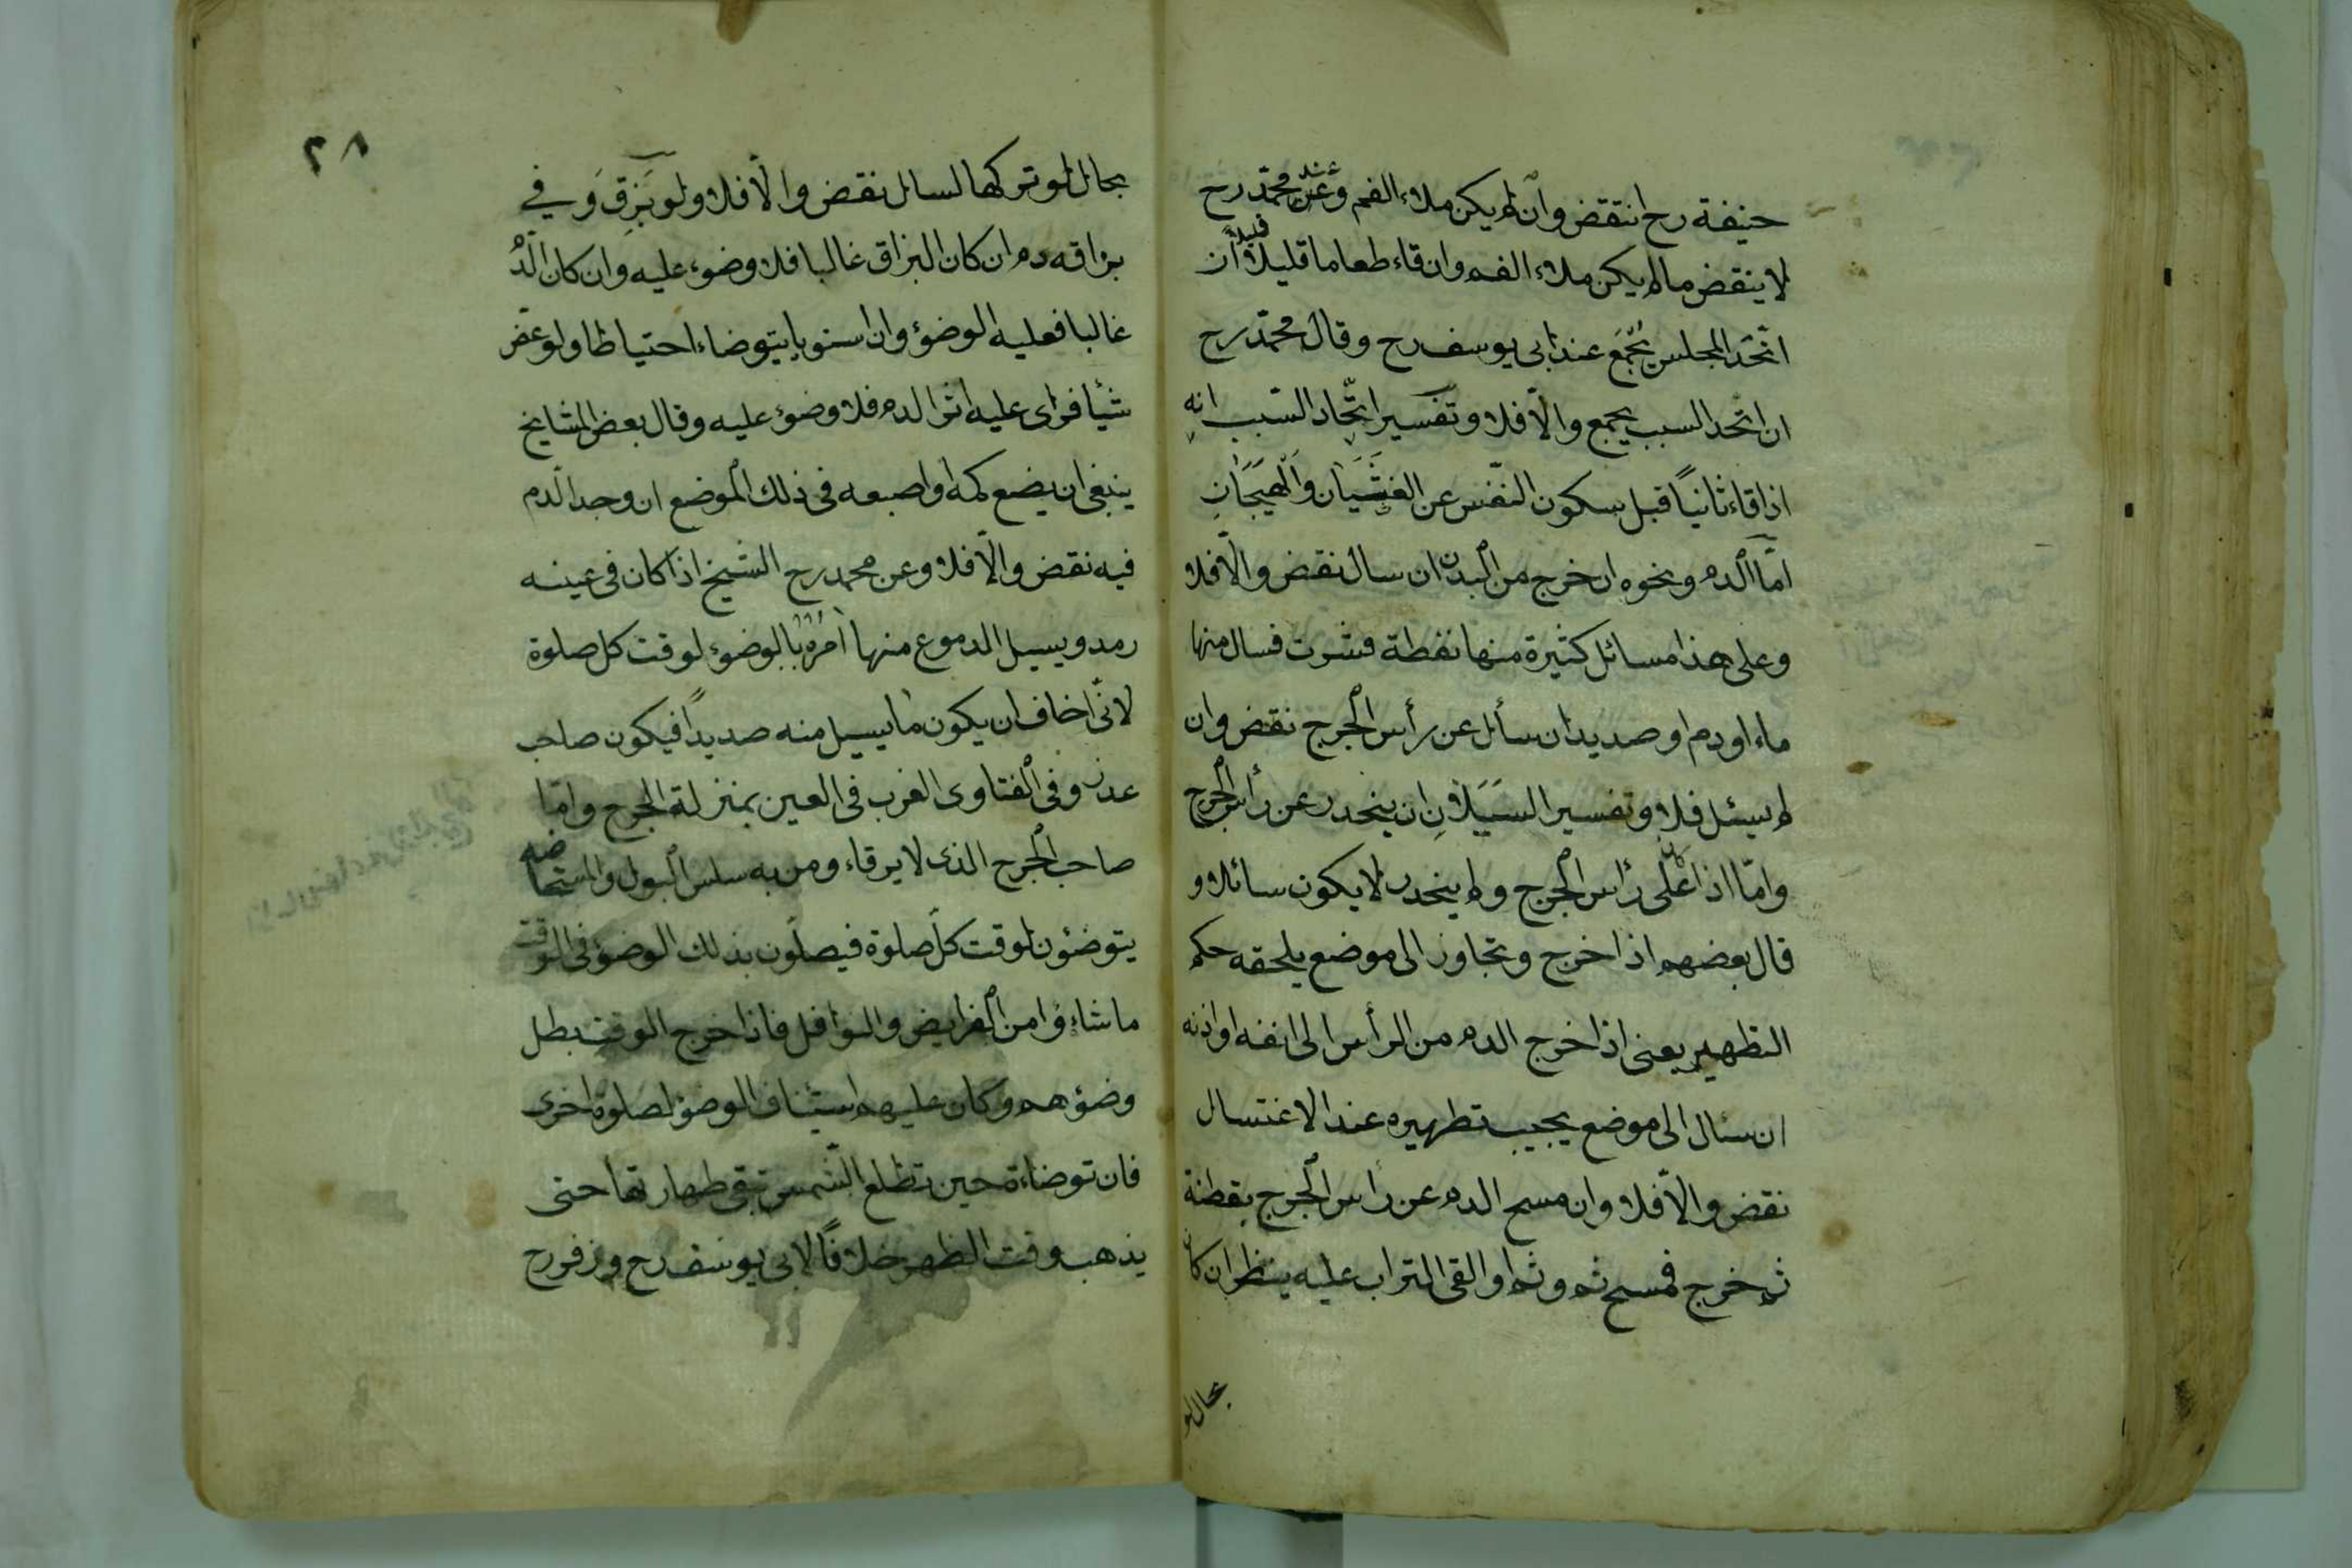 حنيفة رح انتقض وان لم يكن ملاء الفم وعند محمّد رح
لا ينقض ما لم يكن ملاء الفم وان قاء طعاما قليلا قليلا ان
اتّحد المجلس يُجْمَع عند ابى يوسف رح وقال محمّد رح
ان اتّحد السبب يجمع والّا فلا وتفسير اتّحاد السّبب انه
اذا قاء ثانياً قبل سكون النّفس عن الغثَيَان والْهَيَجَانِ
امّا الدم ونحوه ان خرج من البدن ان سال نقض والّا فلا
وعلى هذا مسائل كثيرة منها نفطة قشرت فسال منها
ماء او دم او صديد ان سأل عن رأس الجرح نقض وان
لم يسئل فلا وتفسير السَيَلَانِ ان ينحدر عن رأس الجرح
وامّا اذا كان على رأس الجرح ولم ينحدر لا يكون سائلا و
قال بعضهم اذا خرج وتجاوز الى موضع يلحقه حكم
التطهير يعنى اذا خرج الدم من الرأس الى انفه او اذنه
ان سئال الى موضع يجب تطهيره عند الاغتسال
نقض والّا فلا وان مسح الدم عن رأس الجرح بقطنة
ثم خرج فمسح ثم وثم او القى التراب عليه ينظر ان كان
بحال لو
٢٨
بحال لو تركها لسال نقض والّا فلا ولو بَزِقَ وَفي
بزاقه دم ان كان البزاق غالبا فلا وضوء عليه وان كان الدّم
غالبا فعليه الوضؤ وان استويا يتوضاء احتياطا ولو عضّ
شيئا فراى عليه اثر الدم فلا وضوء عليه وقال بعض المشايخ
ينبغى ان يضع كمه او اصبعه فى ذلك الموضع ان وجد الدم
فيه نقض والّا فلا وعن محمد رح الشيخ اذا كان فى عينه
رمد ويسيل الدموع منها امره بالوضوء لوقت كل صلوة
لانّى اخاف ان يكون ما يسيل منه صديداً فيكون صاحب
عذر وفى الفتاوى الغرب فى العين بمنزلة الجرح وامّا
صاحب الجرح الذى لا يرقاء ومن به سلس البول والمستحاضه
يتوضؤن لوقت كلّ صلوة فيصلّون بذلك الوضؤ فى الوقت
ما شاءؤا من الفرايض والنوافل فاذا خرج الوقت بطل
وضؤهم وكان عليهم استيناف الوضؤ لصلوة اخرى
فان توضاءة حين تطلع الشّمس تبقى طهارتها حتى
يذهب وقت الظهر خلافاً لابى يوسف رح وزفر رح